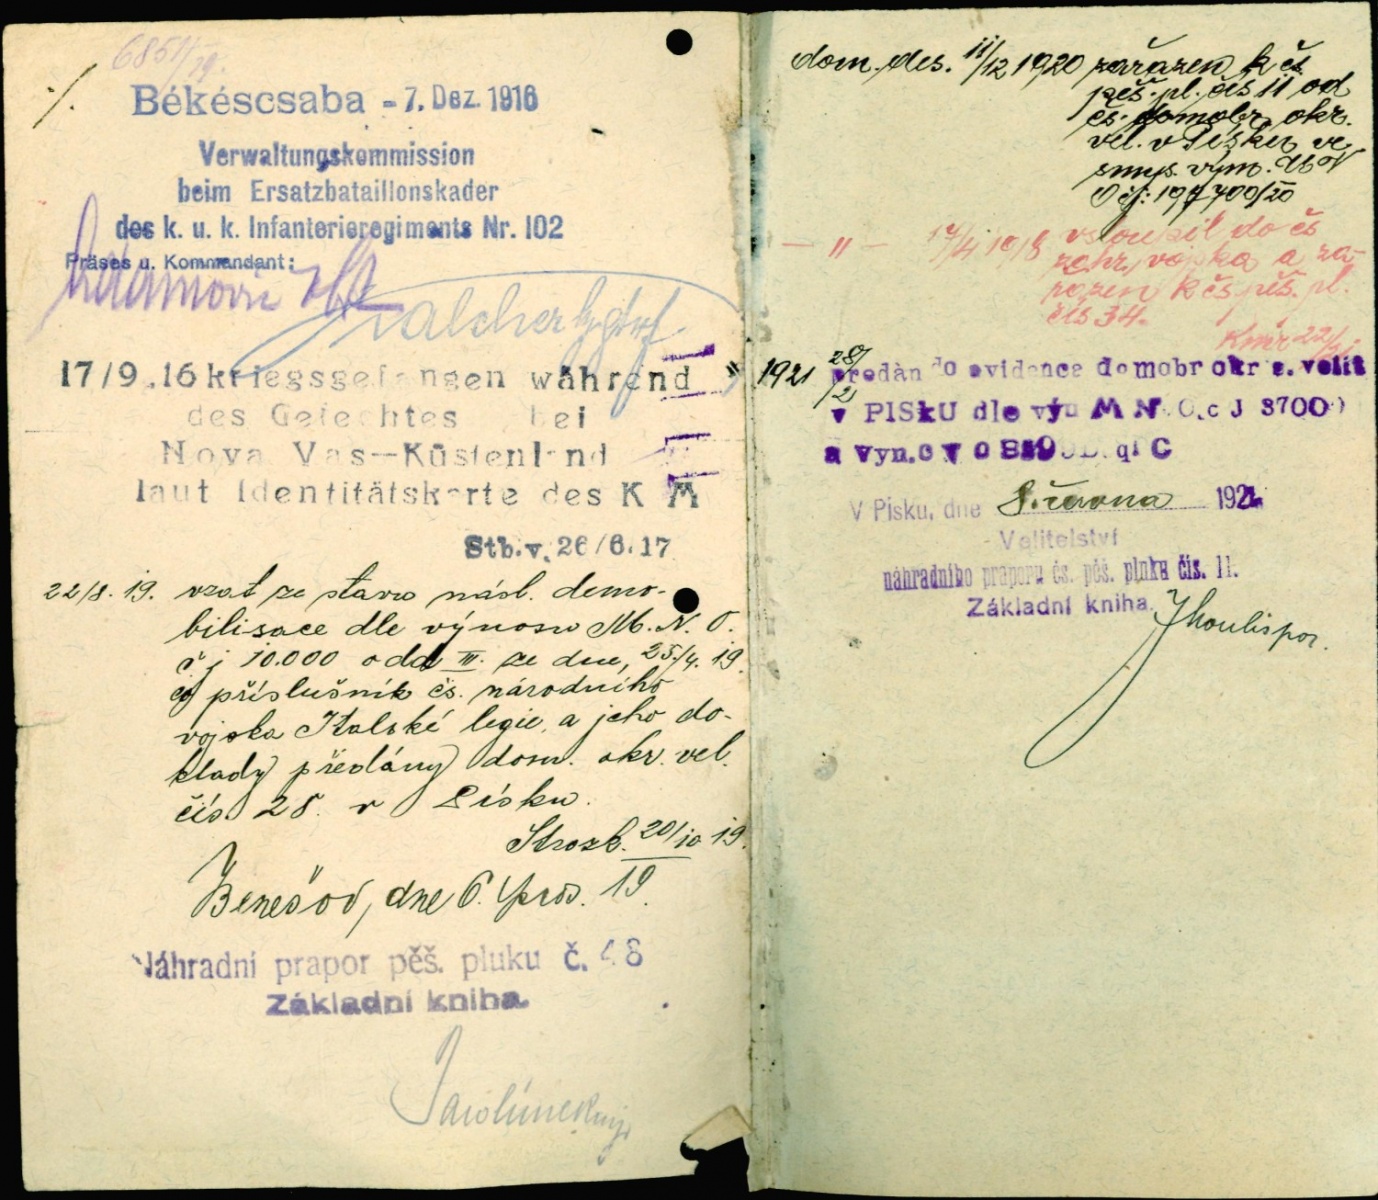 6851/19.
Békéscsaba - 7. Dez. 1916
Verwaltungskommission
beim Ersatzbataillonskader
des k. u. k. Infanterieregiments Nr. 102
Präses u. Kommandant:
17/9.16 kriegsgefangen während
des Gefechtes bei
Nova Vas-Küstenland
laut Identitätskarte des K M
Stb.v. 26/6.17
22/8. 19. vzat ze stavu násl. demo-
bilisace dle výnosu M. N. O.
čj 10.000 odd III. ze dne, 25./4. 19.
co příslušník čs. národního
vojska Italské legie, a jeho do-
klady předány dom. okr. vel.
čís 28. v Písku.
20/10 19.
Benešov, dne 6. pros. 19.
Náhradní prapor pěš. pluku č. 48
Základní kniha.
dom. des. 11/12 1920 zařazen k čs
pěš. pl. čís 11 od
čs. domobr. okr.
vel. v Písku ve
smys. výn. M N
O čj: 197700/20
- " - 17/4 1918 vstoupil do čs
zahr. vojska a za-
řazen k čs pěš. pl.
čís 34.
1921 28/2 předán do evidence domobr okr s. velit
v PISkU dle výn M N O. č J 3700
a vyn. č
V Písku, dne 8. června 1921.
Velitelství
náhradního praporu čs. pěš. pluku čís. 11.
Základní kniha.